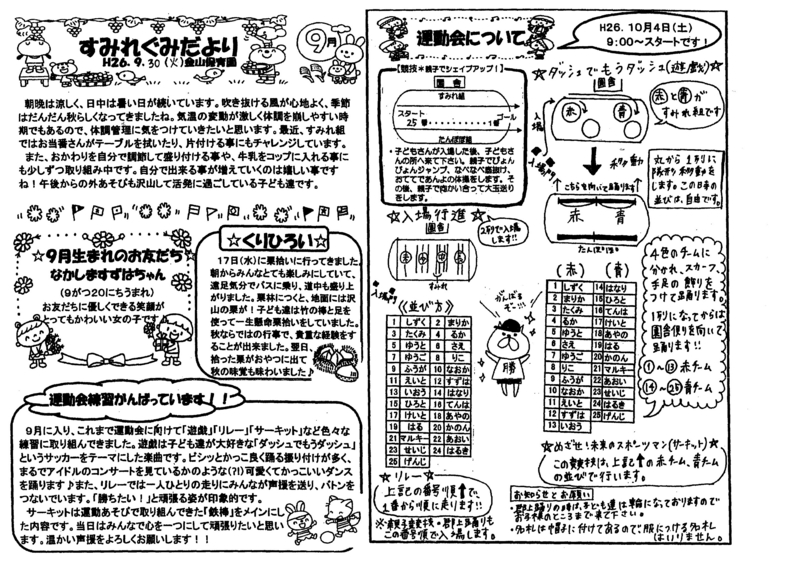 すみれぐみだより
9月
H26.9.30(火)金山保育園
朝晩は涼しく、日中は暑い日が続いています。吹き抜ける風が心地よく、季節
はだんだん秋らしくなってきましたね。気温の変動が激しく体調を崩しやすい時
期でもあるので、体調管理に気をつけていきたいと思います。最近、すみれ組
ではお当番さんがテーブルを拭いたり、片付ける事にもチャレンジしています。
また、おかわりを自分で調節して盛り付ける事や、牛乳をコップに入れる事に
も少しずつ取り組み中です。自分で出来る事が増えていくのは嬉しい事です
ね!午後からの外あそびも沢山して活発に過ごしている子ども達です。
☆9月生まれのお友だち☆
なかしますずはちゃん
(9がつ20にちうまれ)
お友だちに優しくできる笑顔が
とってもかわいい女の子です
☆くりひろい☆
17日(水)に栗拾いに行ってきました。
朝からみんなとても楽しみにしていて、
遠足気分でバスに乗り、道中も盛り上
がりました。栗林につくと、地面には沢
山の栗が!子ども達は竹の棒と足を
使って一生懸命栗拾いをしていました。
秋ならではの行事で、貴重な経験をす
ることが出来ました。翌日、
拾った栗がおやつに出て
秋の味覚も味わいました♪
運動会練習がんばっています!!
9月に入り、これまで運動会に向けて「遊戯」「リレー」「サーキット」など色々な
練習に取り組んできました。遊戯は子ども達が大好きな「ダッシュでもうダッシュ」
というサッカーをテーマにした楽曲です。ビシッとかっこ良く踊る振り付けが多く、
まるでアイドルのコンサートを見ているかのような(?!)可愛くてかっこいいダンス
を踊ります♪また、リレーでは一人ひとりの走りにみんなが声援を送り、バトンを
つないでいます。「勝ちたい!」と頑張る姿が印象的です。
サーキットは運動あそびで取り組んできた「鉄棒」をメインにし
た内容です。当日はみんなで心を一つにして頑張りたいと思い
ます。温かい声援をよろしくお願いします!!
運動会について
H26.10月4日(土)
9:00~スタートです!
【競技*親子でシェイプアップ!】
園舎
すみれ組
スタート
ゴール
25
1
たんぽぽ組
・子どもさんが入場した後、子どもさ
んの所へ来て下さい。親子でぴょん
ぴょんジャンプ、なべなべ底抜け、
おててであんよの体操をします。そ
の後、親子で向かい合って大玉送り
をします。
☆入場行進
園舎
2列で入場
します!!
すみれ
入場門
《並び方》
1 しずく 2 まりか
3 たくみ 4 るか
5 ゆうと 6 さえ
7 ゆうご 8 りこ
9 ふうが 10 なおか
11 えいと 12 すずは
13 いおう 14 はなり
15 ひろと 16 てんは
17 けいと 18 あやの
19 はる 20 かのん
21 マルキー 22 あおい
23 せいじ 24 はるき
25 げんじ
がんばる
ぞー!
勝
☆リレー☆
上記の番号順で、
1番から順に走ります!!
※親子競技・郡上踊りも
この番号順で入場します。
☆ダッシュでもうダッシュ(遊戯)☆
園舎
赤
青
入場
赤と青が
すみれ組です
移動
こちらを向いて踊ります
赤 青
たんぽぽ
丸から1列に
隊形移動を
します。この日本の
並びは、自由です。
(赤) (青)
1 しずく 14 はなり
2 まりか 15 ひろと
3 たくみ 16 てんは
4 るか 17 けいと
5 ゆうと 18 あやの
6 さえ 19 はる
7 ゆうご 20 かのん
8 りこ 21 マルキー
9 ふうが 22 あおい
10 なおか 23 せいじ
11 えいと 24 はるき
12 すずは 25 げんじ
13 いおう
4色のチームに
分かれ、スカーフ、
手足の飾りを
つけて踊ります。
1列になってからは
園舎側を向いて
踊ります!!
①~⑬赤チーム
⑭~㉕青チーム
☆めざせ!未来のスポーツマン(サーキット)☆
この競技は、上記の赤チーム、青チーム
の並びで行います。
お知らせとお願い
・郡上踊りの時は、子ども達は輪になっておりますので
お子様のところまで来て下さい。
・名札は帽子に付けてあるので、服につける名札
はいりません。